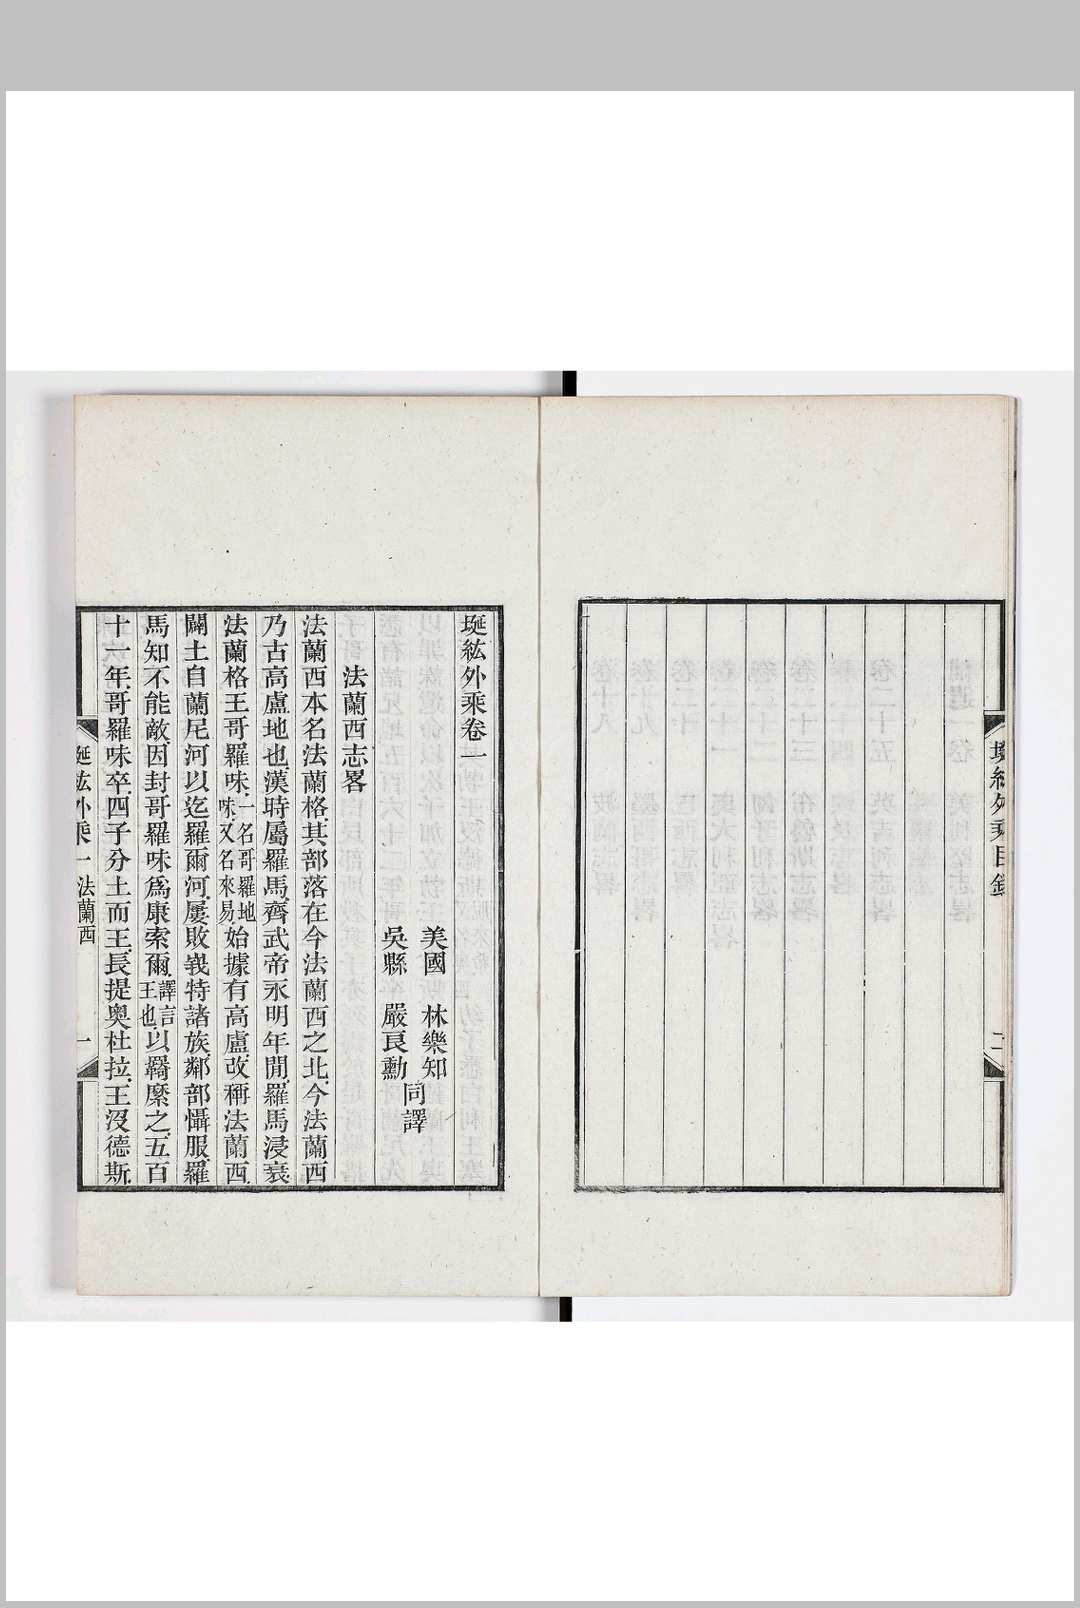 埏紘外乘目錄
二
埏紘外乘卷一
美國 林樂知
吳縣 嚴良勳
同譯
法蘭西志畧
法蘭西本名法蘭格其部落在今法蘭西之北今法蘭西
乃古高盧地也漢時屬羅馬齊武帝永明年閒羅馬浸衰
法蘭格王哥羅味一名哥羅地味又名來易始據有高盧改稱法蘭西
闢土自蘭尼河以迄羅爾河屢敗峩特諸族鄰部懾服羅
馬知不能敵因封哥羅味爲康索爾譯言王也以羇縻之五百
十一年哥羅味卒四子分土而王長提奧杜拉王沒德斯
埏紘外乘一 法蘭西
一